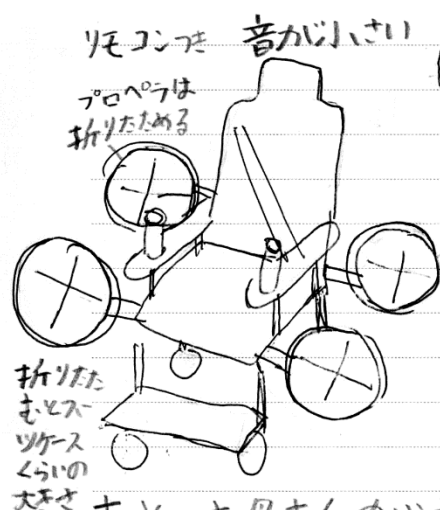 リモコンつき 音が小さい
プロペラは
折りたためる
折りたた
むとスー
ツケース
くらいの
大きさ